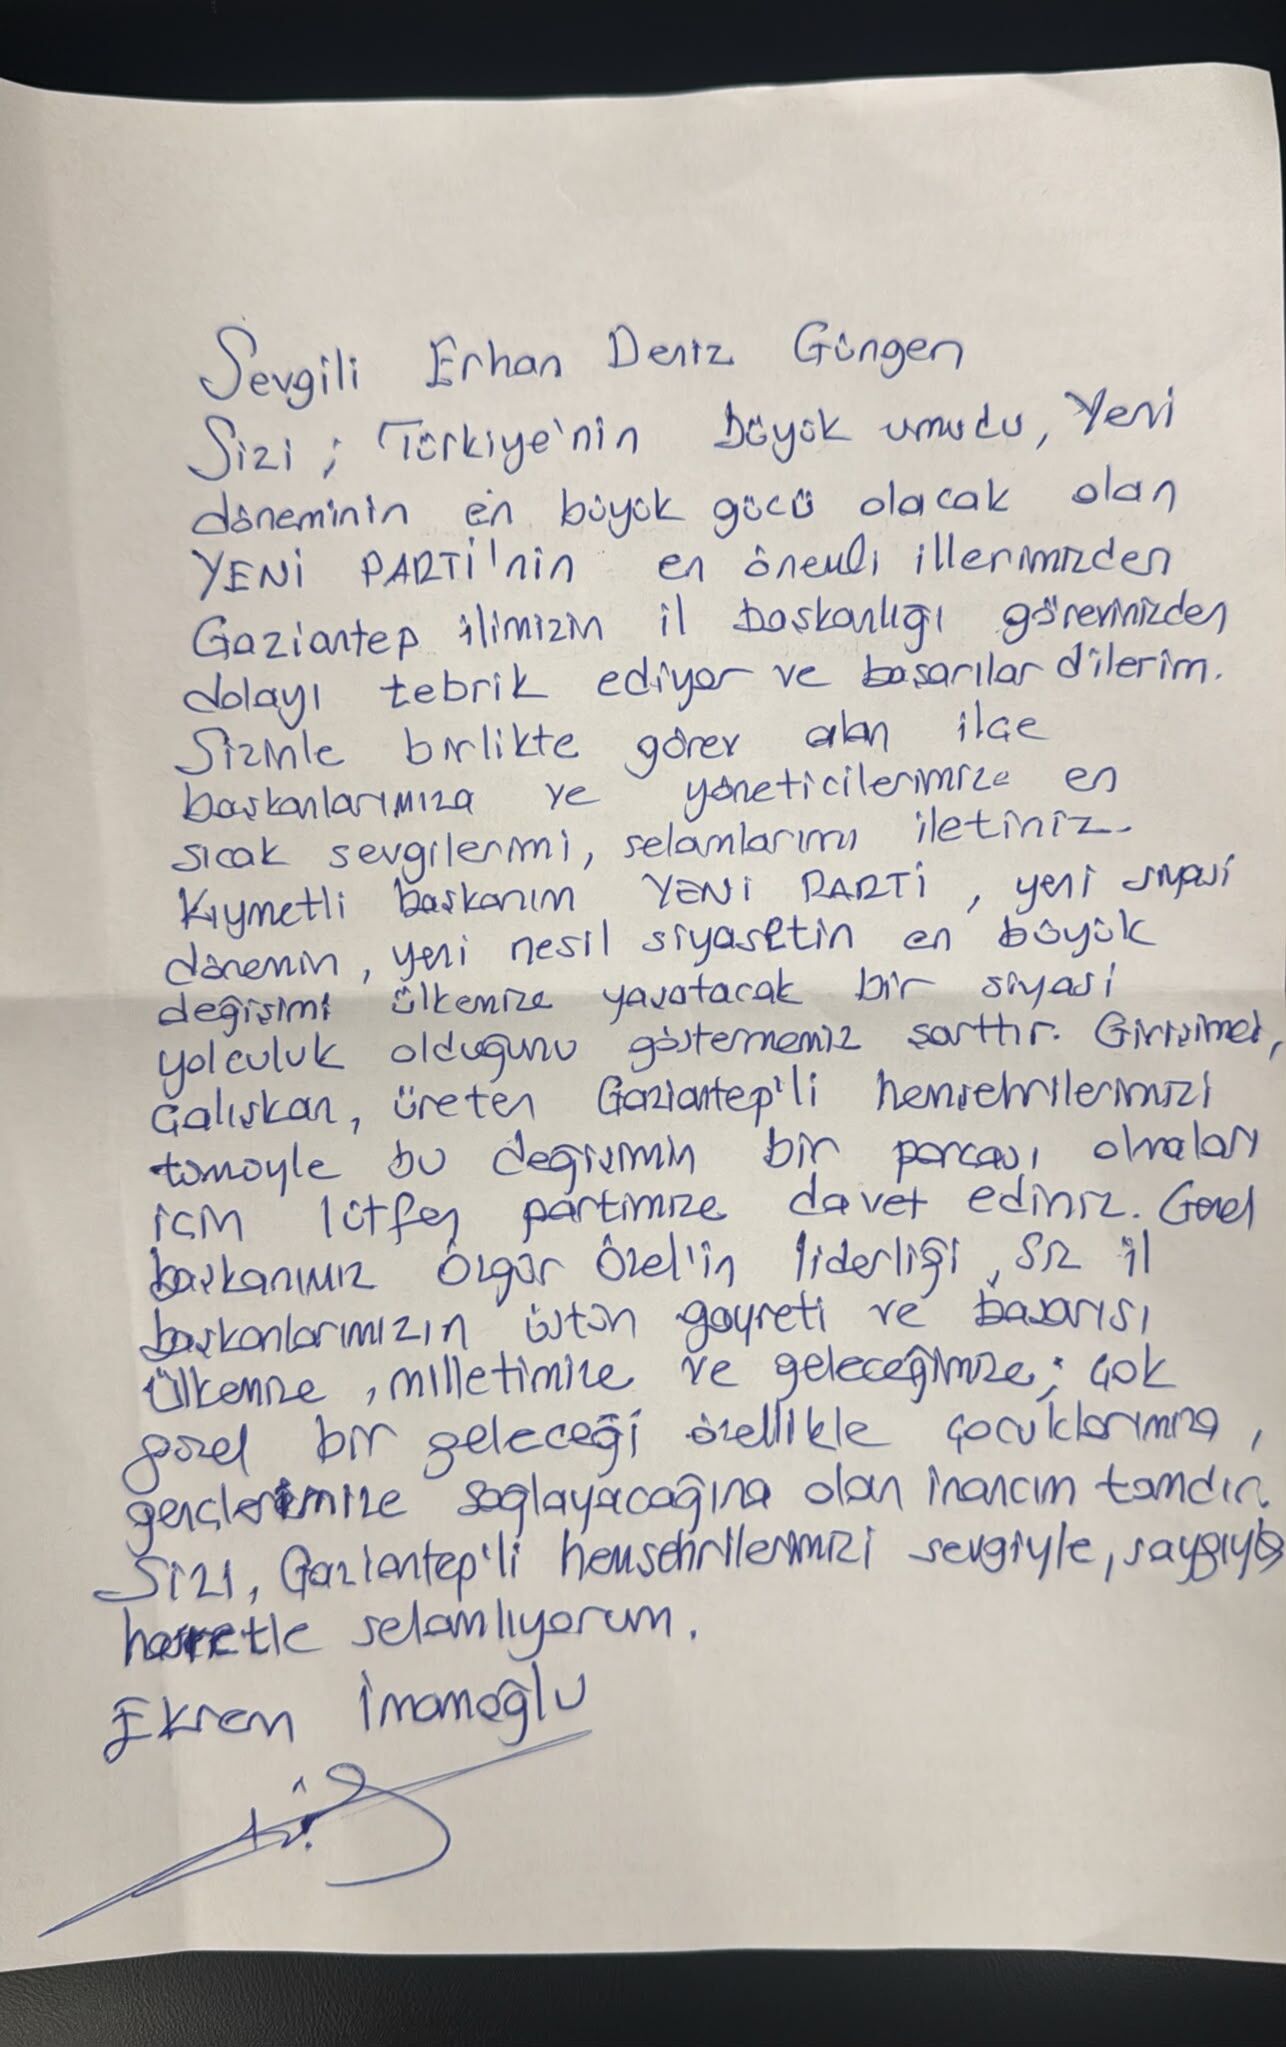 Sevgili Erhan Deniz Güngen
Sizi ; Türkiye'nin büyük umudu, Yeni
döneminin en büyük gücü olacak olan
YENİ PARTİ'nin en önemli illerimizden
Gaziantep ilimizin il başkanlığı görevinizden
dolayı tebrik ediyor ve başarılar dilerim.
Sizinle birlikte görev alan ilçe
başkanlarımıza ve yöneticilerimize en
sıcak sevgilerimi, selamlarımı iletiniz.
Kıymetli başkanım YENİ PARTİ, yeni siyasi
dönemin, yeni nesil siyasetin en büyük
değişimi ülkemize yaşatacak bir siyasi
yolculuk olduğunu göstermemiz şarttır. Girişimci,
çalışkan, üreten Gaziantep'li hemşehrilerimizi
tamamıyle bu değişimin bir parçası olmaları
için lütfen partimize davet ediniz. Genel
başkanımız Özgür Özel'in liderliği, siz il
başkanlarımızın üstün gayreti ve başarısı
ülkemize, milletimize ve geleceğimize; çok
güzel bir geleceği özellikle çocuklarımıza,
gençlerimize sağlayacağına olan inancım tamdır.
Sizi, Gaziantep'li hemşehrilerimizi sevgiyle, saygıyla
hasretle selamlıyorum.
Ekrem İmamoğlu